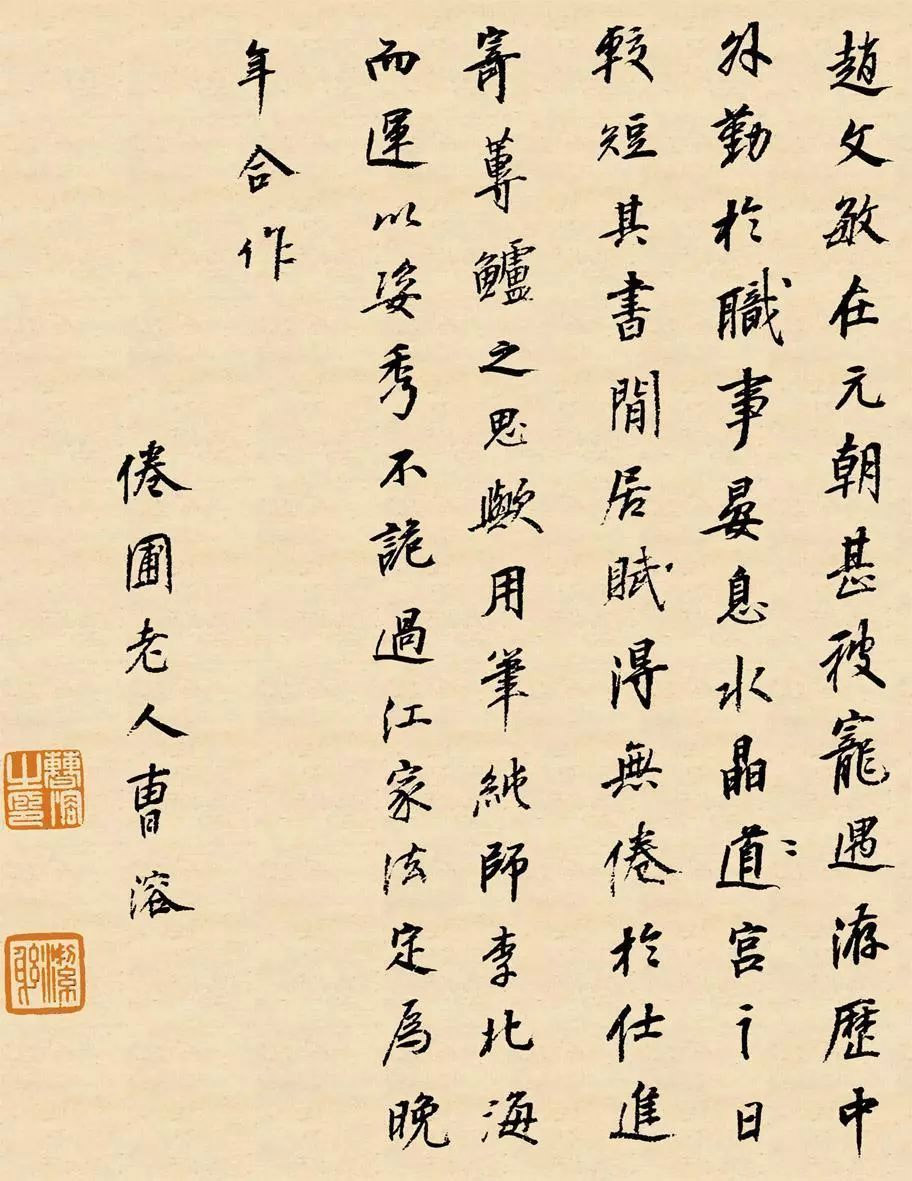 趙文敏在元朝甚被寵遇游歷中
外勤於職事晏息水晶道宮之日
較短其書閒居賦得無倦於仕進
寄蓴鱸之思歟用筆純師李北海
而運以姿秀不詭過江家法定爲晚
年合作
倦圃老人曹溶
曹溶之印
潔躬